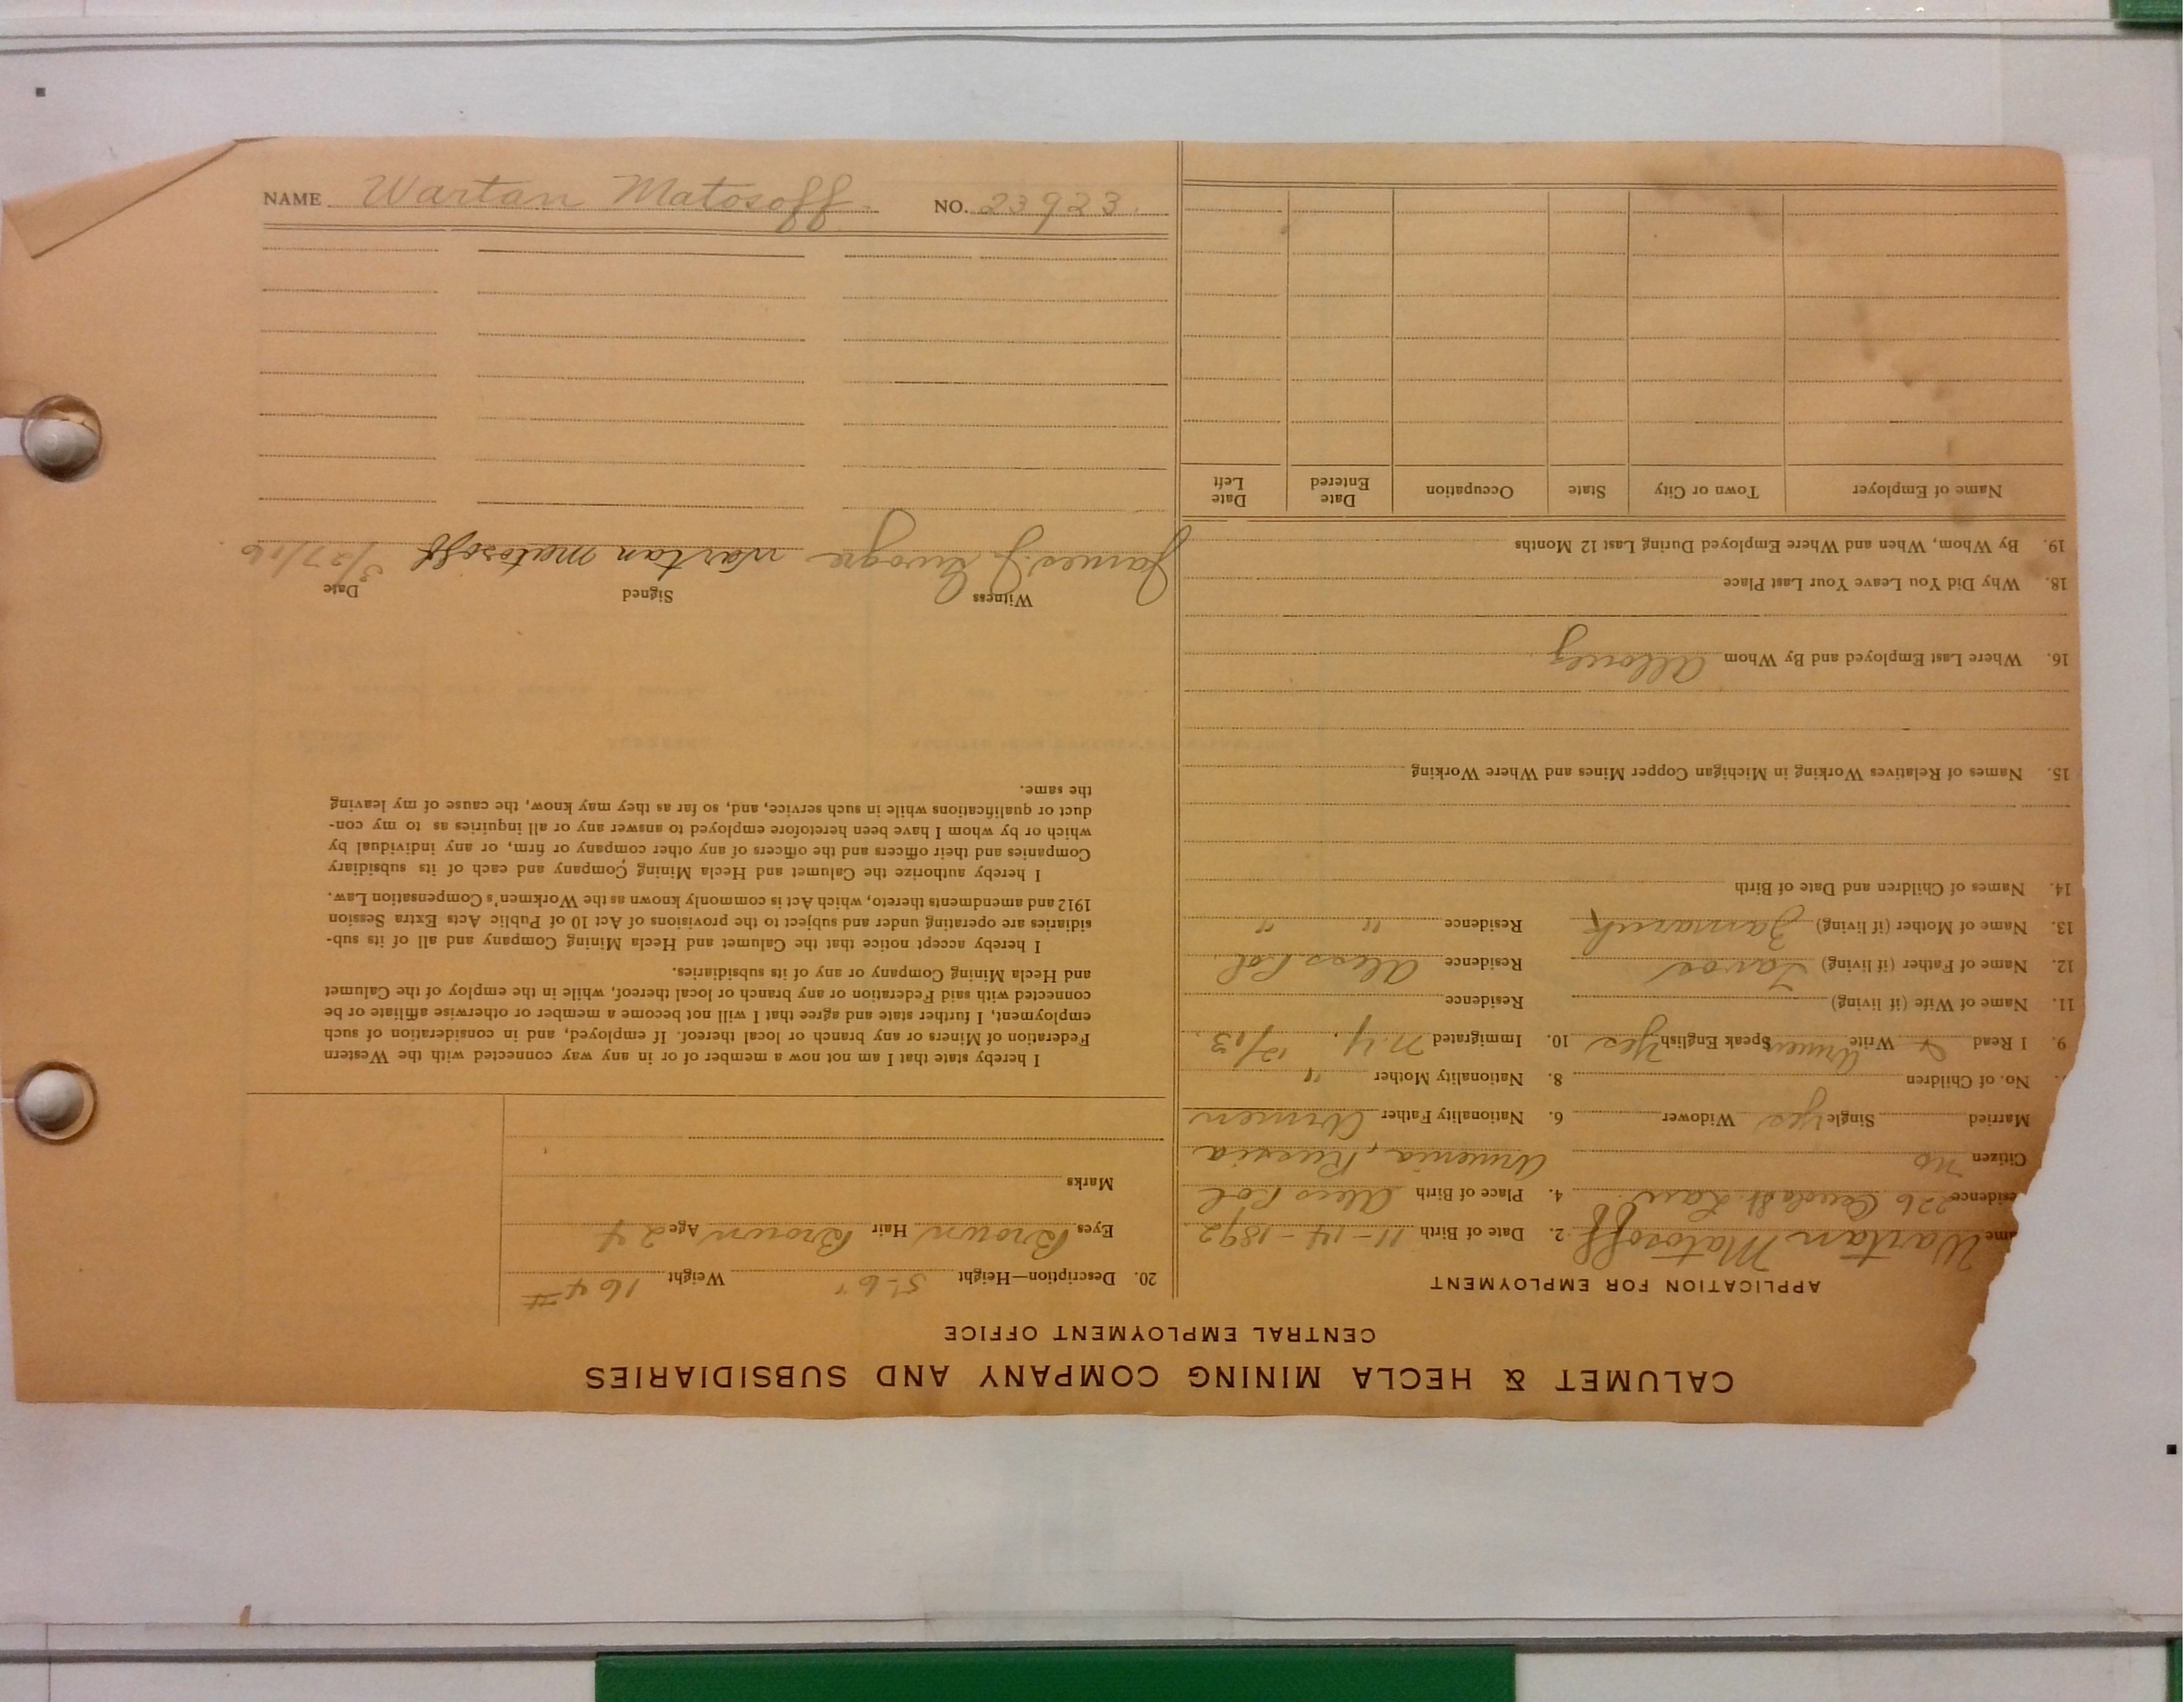 NAME Wartan Matosoff. NO. 23923.
CALUMET & HECLA MINING COMPANY AND SUBSIDIARIES
CENTRAL EMPLOYMENT OFFICE
APPLICATION FOR EMPLOYMENT
ame Wartan Matosoff 2. Date of Birth 11-14-1892
esidence 226 St. 4. Place of Birth Alex Pol
Citizen no Armenia, Russia
Married Single Yes Widower 6. Nationality Father Armen
No. of Children 8. Nationality Mother "
9. I Read & Write Armen Speak English Yes 10. Immigrated N.Y. 12/13.
11. Name of Wife (if living) Residence
12. Name of Father (if living) Residence Alex Pol.
13. Name of Mother (if living) Residence " "
14. Names of Children and Date of Birth
15. Names of Relatives Working in Michigan Copper Mines and Where Working
16. Where Last Employed and By Whom Allouez
18. Why Did You Leave Your Last Place
19. By Whom, When and Where Employed During Last 12 Months
Name of Employer Town or City State Occupation Date Entered Date Left
20. Description—Height 5-6" Weight 164#
Eyes Brown Hair Brown Age 24
Marks
I hereby state that I am not now a member of or in any way connected with the Western
Federation of Miners or any branch or local thereof. If employed, and in consideration of such
employment, I further state and agree that I will not become a member or otherwise affiliate or be
connected with said Federation or any branch or local thereof, while in the employ of the Calumet
and Hecla Mining Company or any of its subsidiaries.
I hereby accept notice that the Calumet and Hecla Mining Company and all of its sub-
sidiaries are operating under and subject to the provisions of Act 10 of Public Acts Extra Session
1912 and amendments thereto, which Act is commonly known as the Workmen's Compensation Law.
I hereby authorize the Calumet and Hecla Mining Company and each of its subsidiary
Companies and their officers and the officers of any other company or firm, or any individual by
which or by whom I have been heretofore employed to answer any or all inquiries as to my con-
duct or qualifications while in such service, and, so far as they may know, the cause of my leaving
the same.
Witness Signed Date
James J. wartan matosoff 3/27/16